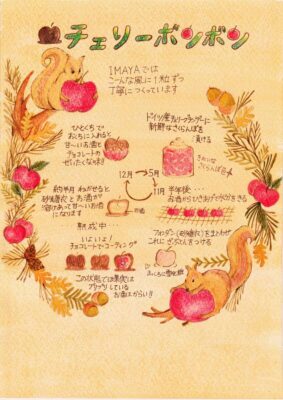 チェリーボンボン
IMAYAでは
こんな風に1粒ずつ
丁寧につくっています
ひとくちで
おくちに入れると
甘〜いお酒と
チョコレートの
ぜいたくな味!
ドイツ産チェリーブランデーに
新鮮なさくらんぼを
漬ける
きれいな
さくらんぼ
12月
5月
11月
半年後…
お酒からひきあげて水分をきる
約半月 ねかせると
砂糖衣と お酒が
溶けあって 甘〜いお酒
になります
お酒
熟成中…
いよいよ!
チョコレートでコーティング
この状態では果実は
ブラックしている
お酒はからい!!
フォンダン(砂糖衣)をまとわせ
これに ざらとうをつける